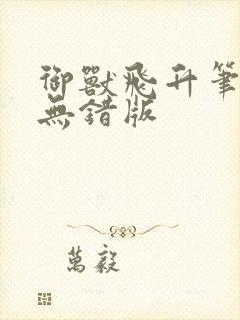 御獸飛升筆
無錯版
萬毅